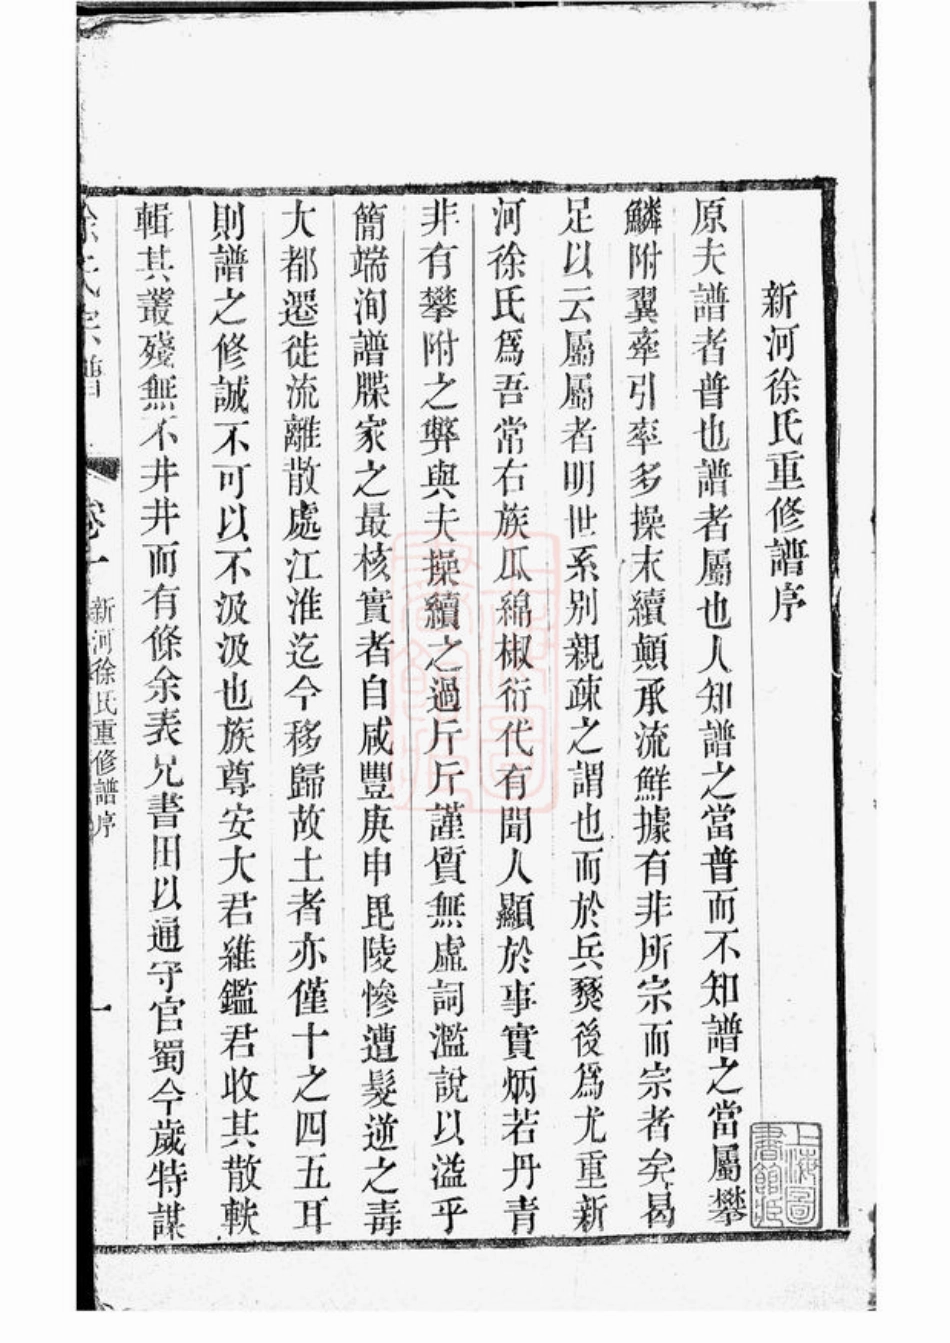 新河徐氏重修譜序
原夫譜者普也譜者屬也人知譜之當普而不知譜之當屬攀
鱗附翼牽引率多操末續顛承流鮮據有非所宗而宗者矣曷
足以云屬屬者明世系别親疎之謂也而於兵燹後爲尤重新
河徐氏爲吾常右族瓜綿椒衍代有聞人顯於事實炳若丹青
非有攀附之弊與夫操續之過斤斤謹質無虛詞濫說以溢乎
簡端洵譜牒家之最核實者自咸豐庚申毘陵慘遭髮逆之毒
大都遷徙流離散處江淮迄今移歸故土者亦僅十之四五耳
則譜之修誠不可以不汲汲也族尊安大君維鑑君收其散軼
輯其叢殘無不井井而有條余表兄書田以通守官蜀今歲特謀
徐氏宗譜 卷十 新河徐氏重修譜序 一
上海圖書館藏